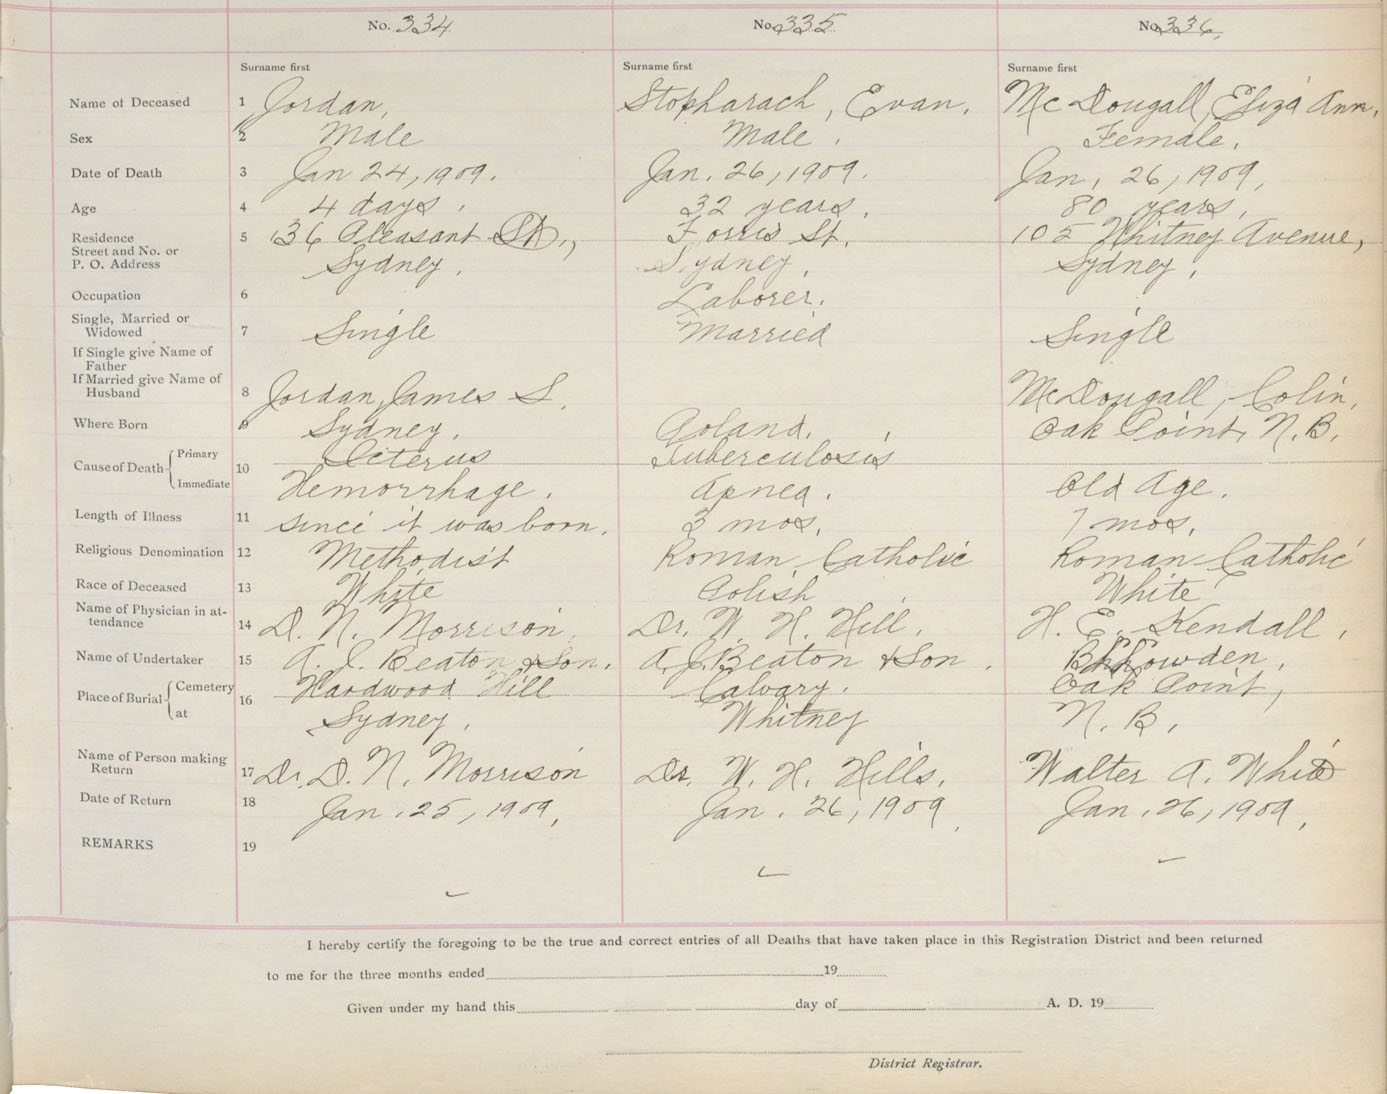 No. 334 No. 335 No. 336
Surname first Surname first Surname first
Name of Deceased 1 Jordan, Stopharach, Evan. McDougall, Eliza Ann.
Sex 2 Male Male. Female.
Date of Death 3 Jan 24, 1909. Jan. 26, 1909. Jan. 26, 1909,
Age 4 4 days. 32 years. 80 years,
Residence 5 136 Pleasant St., St. 105 Whitney Avenue,
Street and No. or
P. O. Address Sydney. Sydney, Sydney,
Occupation 6 Laborer.
Single, Married or
Widowed 7 Single Married Single
If Single give Name of
Father
If Married give Name of
Husband 8 Jordan, James S. McDougall, Colin,
Where Born 9 Sydney. Poland. Oak Point, N. B.
Cause of Death Primary 10 Icterus Tuberculosis
Immediate Hemorrhage. Apnea. Old Age.
Length of Illness 11 since it was born. 3 mos. 7 mos.
Religious Denomination 12 Methodist Roman Catholic Roman Catholic
Race of Deceased 13 White Polish White
Name of Physician in at-
tendance 14 D. N. Morrison, Dr. W. H. Hill. H. E. Kendall,
Name of Undertaker 15 A. J. Beaton & Son. A. J. Beaton & Son.
Place of Burial Cemetery 16 Hardwood Hill Calvary. Oak Point,
at Sydney. Whitney N. B.
Name of Person making
Return 17 Dr. D. N. Morrison Dr. W. H. Hills. Walter A. White
Date of Return 18 Jan. 25, 1909, Jan. 26, 1909, Jan. 26, 1909,
REMARKS 19
I hereby certify the foregoing to be the true and correct entries of all Deaths that have taken place in this Registration District and been returned
to me for the three months ended 19
Given under my hand this day of A. D. 19
District Registrar.